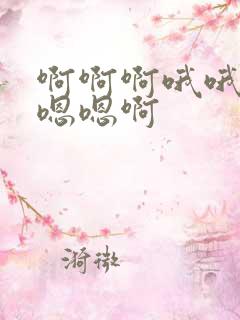 啊啊啊哦哦
嗯嗯啊
漪微